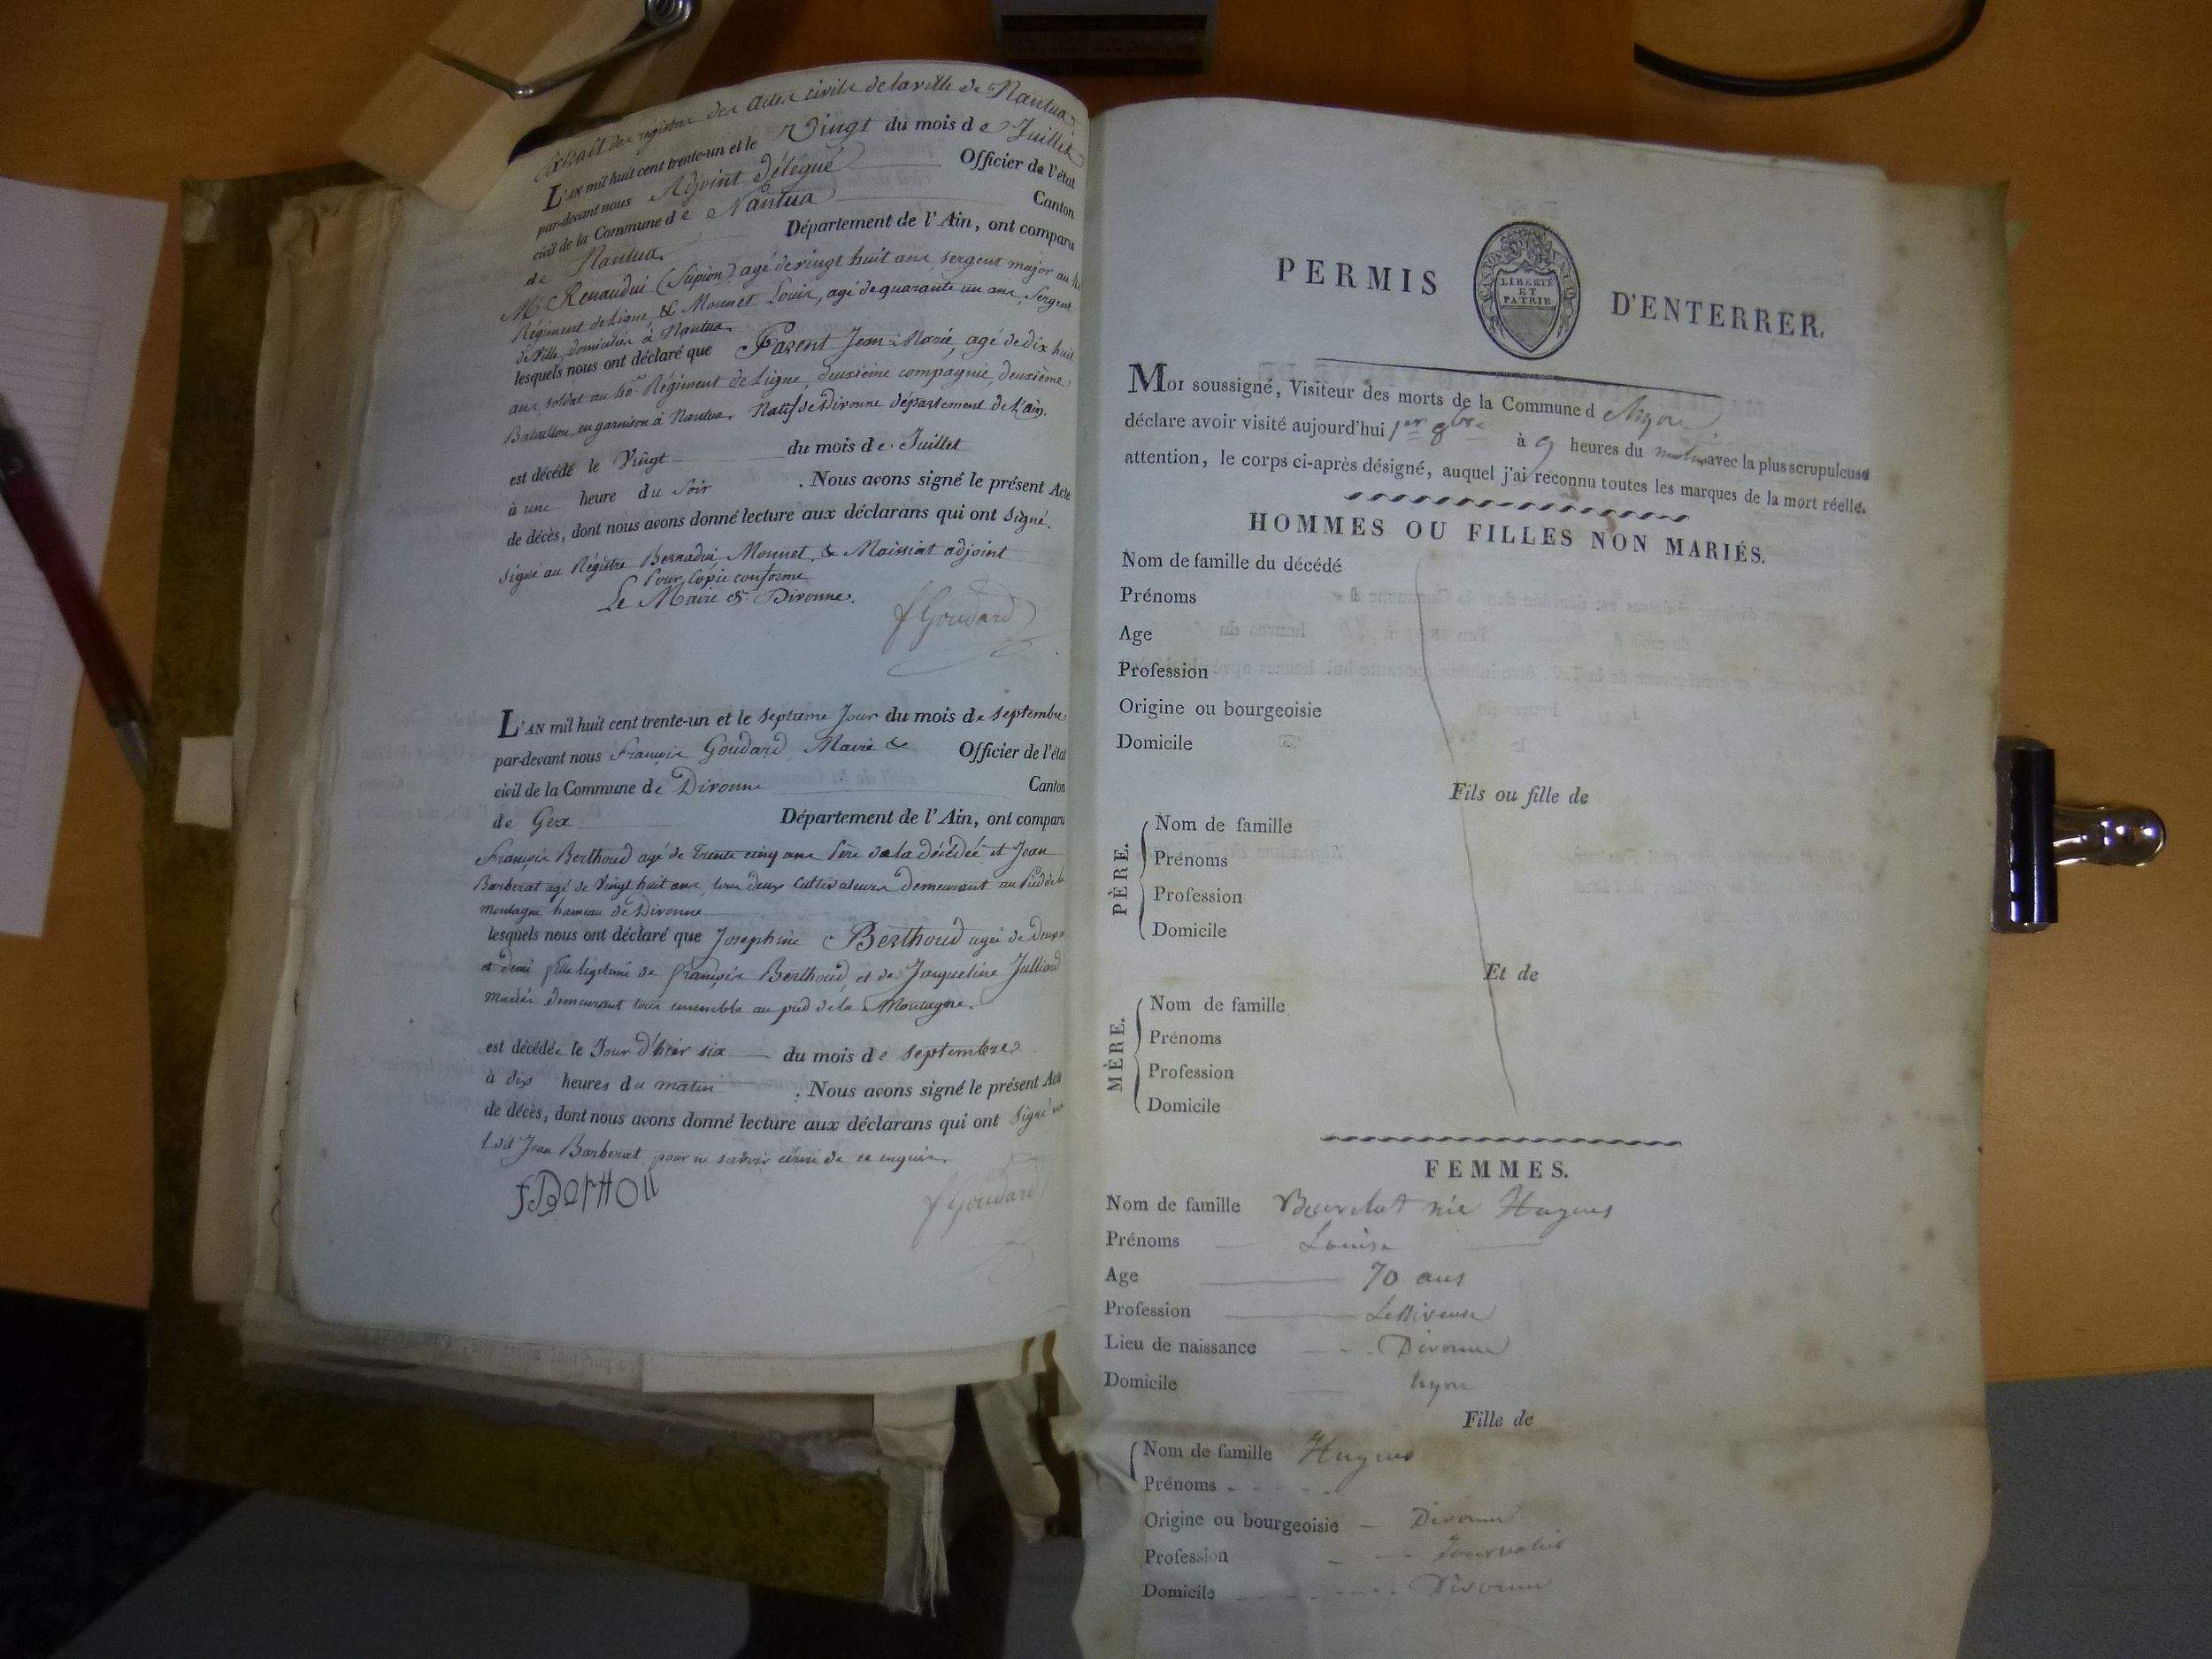 Extrait des registres des Actes civils de la ville de Nantua
L'AN mil huit cent trente-un et le Vingt du mois de Juillet
par-devant nous Adjoint délégué Officier de l'état
civil de la Commune de Nantua Canton
de Nantua Département de l'Ain, ont comparu
Mr Renaudui (Scipion) agé de vingt huit ans, sergent major au
Régiment de Ligne & Monnet Louis, agé de quarante un ans, Sergent
de Ville, domiciliés à Nantua
lesquels nous ont déclaré que Parent Jean-Marie, agé de dix huit
ans, soldat au Régiment de Ligne, deuxième compagnie, deuxième
Bataillon, en garnison à Nantua, Natif de Divonne département de l'ain.
est décédé le Vingt du mois de Juillet
à une heure du soir . Nous avons signé le présent Acte
de décès, dont nous avons donné lecture aux déclarans qui ont signé.
Signé au Régistre Monnet, & Moissiat adjoint
Pour Copie conforme
Le Maire de Divonne.
f Goudard
L'AN mil huit cent trente-un et le septieme Jour du mois de septembre
par-devant nous François Goudard Maire & Officier de l'état
civil de la Commune de Divonne Canton
de Gex Département de l'Ain, ont comparu
François Berthoud agé de trente cinq ans Père de la décédée et Jean
Barberat agé de Vingt huit ans, tous deux Cultivateurs demeurant au Pied de la
montagne hameau de Divonne
lesquels nous ont déclaré que Josephine Berthoud agée de deux
et demi fille légitime de françois Berthoud et de Jacqueline Julliard
mariés demeurant tous ensemble au pied de la Montagne.
est décédée le Jour d'hier six du mois de septembre
à dix heures du matin . Nous avons signé le présent Acte
de décès, dont nous avons donné lecture aux déclarans qui ont signé
Jean Barberat pour ne savoir écrire de ce enquis
f Goudard
PERMIS D'ENTERRER.
CANTON DE VAUD
LIBERTÉ
ET
PATRIE
MOI soussigné, Visiteur des morts de la Commune d Nyon
déclare avoir visité aujourd'hui 1er 8bre à 9 heures du matin avec la plus scrupuleuse
attention, le corps ci-après désigné, auquel j'ai reconnu toutes les marques de la mort réelle.
HOMMES OU FILLES NON MARIÉS.
Nom de famille du décédé
Prénoms
Age
Profession
Origine ou bourgeoisie
Domicile
Fils ou fille de
PÈRE.
Nom de famille
Prénoms
Profession
Domicile
Et de
MÈRE.
Nom de famille
Prénoms
Profession
Domicile
FEMMES.
Nom de famille née Hugues
Prénoms Louise
Age 70 ans
Profession Lessiveuse
Lieu de naissance Divonne
Domicile Nyon
Fille de
Nom de famille Hugues
Prénoms
Origine ou bourgeoisie Divonne
Profession Journalier
Domicile Divonne